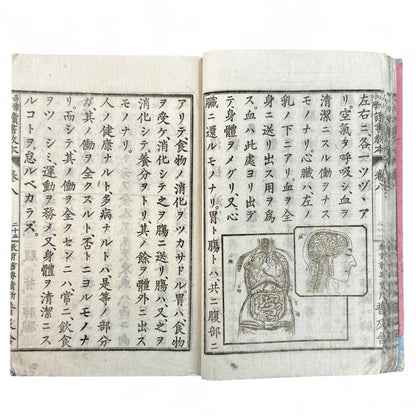 左右ニ、各一ツヅヽア
リ。空氣ヲ呼吸シ、血ヲ
清潔ニスル働ヲナス
モノナリ。心臟ハ、左ノ
乳ノ下ニアリ。血ヲ全
身ニ送リ出スモノナリ。
血ハ此處ヨリ出デ
テ、身體ヲメグリ、又心
臟ニ還ルモノナリ。胃ト腸トハ、共ニ腹部ニ
アリテ、食物ノ消化ヲツカサドル。胃ハ、食物
ヲ受ケ消化シテ之ヲ腸ニ送リ、腸ハ、又、之ヲ
消化シテ、養分ヲトリ、其ノ餘ヲ體外ニ出ス
モノナリ。
人ノ健康ナルト、多病ナルトハ、是等ノ部分
ガ、其ノ働ヲ全クスルト、否トニヨルモノナ
リ。而シテ、其ノ働ヲ全クセンニハ、常ニ、飮食
ヲツヽシミ、運動ヲ務メ、又身體ヲ清潔ニス
ルコトヲ怠ルベカラズ。
讀書敎本 卷八